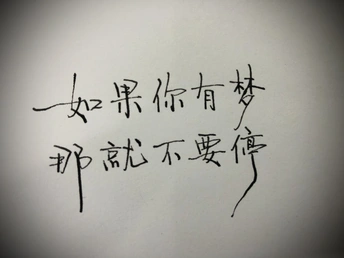 如果你有梦
那就不要停